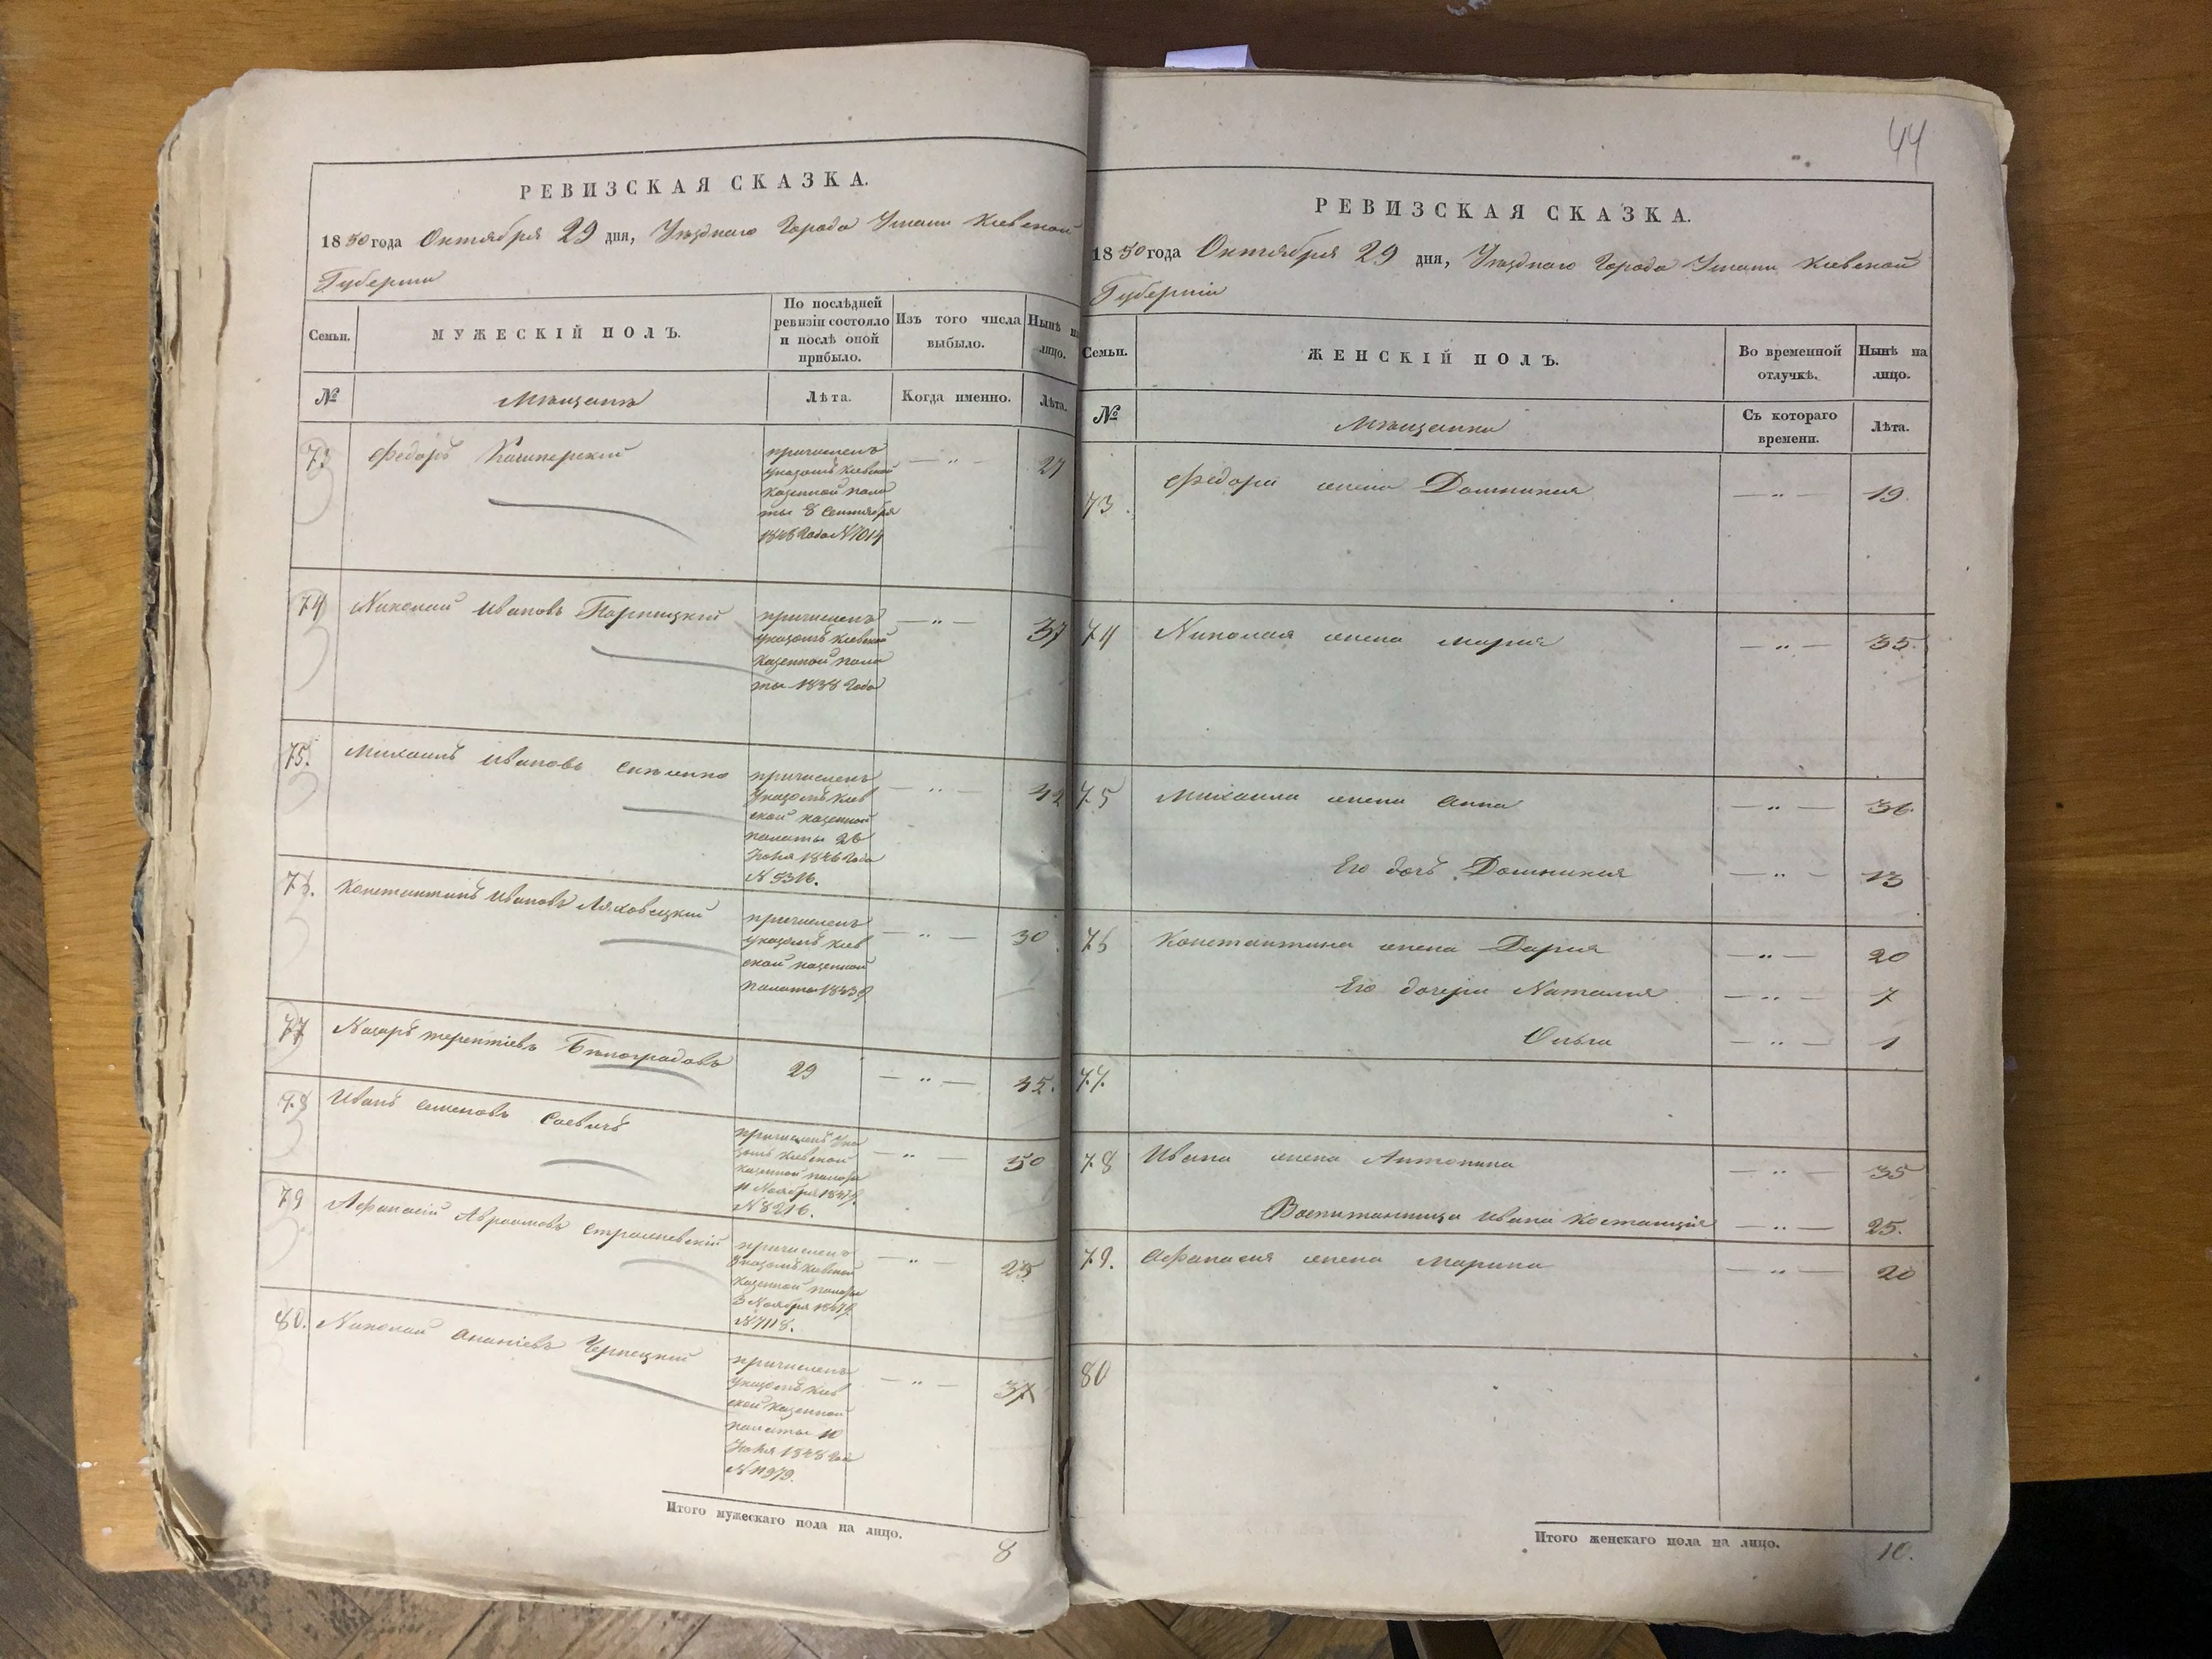 РЕВИЗСКАЯ СКАЗКА.
1850 года Октября 29 дня, Уѣзднаго Города Умани Кіевской
Губерніи
Семьи.
МУЖЕСКІЙ ПОЛЪ.
По послѣдней
ревизіи состояло
и послѣ оной
прибыло.
Изъ того числа
выбыло.
Нынѣ на
лицо.
№
Мѣщанъ
Лѣта.
Когда именно.
Лѣта.
73
Федоръ
причисленъ
указомъ Кіевской
Казенной пала
ты 8 Сентября
1848 Года №
— " —
27
74
Николай Ивановъ
причисленъ
указомъ Кіевской
Казенной пала
ты 1838 Года
— " —
37
75.
Михаилъ Ивановъ
причисленъ
Указомъ Кіев
ской казенной
палаты 26
1846 Года
№ 9316.
— " —
42
76.
Константинъ Ивановъ Ляховецкій
причисленъ
указомъ Кіев
ской казенной
палаты
— " —
30
77
Назаръ Терентіевъ Бѣлоградовъ
29
— " —
45.
78
Иванъ Семеновъ Саевичъ
причисленъ Ука
зомъ Кіевской
казенной палаты
11 Ноября
№ 8216.
— " —
50
79
Афанасій Авраамовъ
причисленъ
Указомъ Кіевской
Казенной палаты
3 Ноября
№ 7118.
— " —
25
80.
Николай Ананіевъ Чернецкій
причисленъ
указомъ Кіев
ской Казенной
палаты 10
1848 Года
№ 11979.
— " —
37
Итого мужескаго пола на лицо.
8
44
РЕВИЗСКАЯ СКАЗКА.
1850 года Октября 29 дня, Уѣзднаго Города Умани Кіевской
Губерніи
Семьи.
ЖЕНСКІЙ ПОЛЪ.
Во временной
отлучкѣ.
Нынѣ на
лицо.
№
Мѣщанки
Съ котораго
времени.
Лѣта.
73.
Федора жена Домникія
— " —
19.
74
Николая жена Марія
— " —
35.
75
Михаила жена Анна
— " —
36.
Его дочь Домникія
— " —
13
76
Константина жена Дарія
— " —
20
Его дочери Наталія
— " —
7
Ольга
— " —
1
77.
78
Ивана жена Антонина
— " —
35
Воспитанница Ивана
— " —
25.
79.
Афанасія жена Марина
— " —
20
80
Итого женскаго пола на лицо.
10.